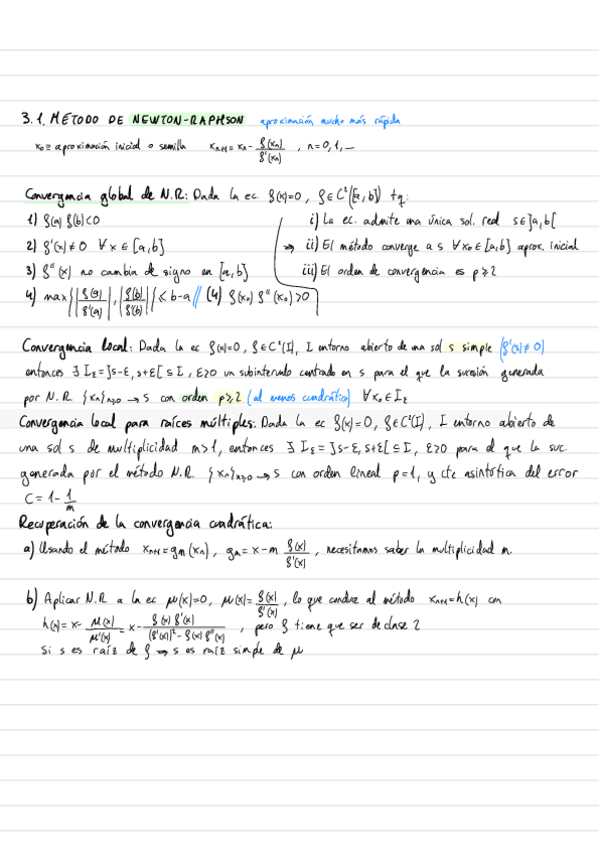 3.1. MÉTODO DE NEWTON-RAPHSON aproximación mucho más rápida
x₀ ≡ aproximación inicial o semilla xₙ₊₁ = xₙ - f(xₙ)/f'(xₙ) , n=0,1,...
Convergencia global de N.R.: Dada la ec. f(x)=0, f∈C²([a,b]) tq:
1) f(a) f(b)<0 i) La ec. admite una única sol. real s∈]a,b[
2) f'(x)≠0 ∀x∈[a,b] → ii) El método converge a s ∀x₀∈[a,b] aprox. inicial
3) f''(x) no cambia de signo en [a,b] iii) El orden de convergencia es p≥2
4) max{|f(a)/f'(a)|,|f(b)/f'(b)|}≤b-a // (4) f(x₀) f''(x₀)>0
Convergencia local: Dada la ec f(x)=0, f∈C²(I), I entorno abierto de una sol s simple (f'(s)≠0)
entonces ∃ I_ε=]s-ε,s+ε[⊆I, ε>0 un subintervalo centrado en s para el que la sucesión generada
por N.R. {xₙ}ₙ≥₀→s con orden p≥2 (al menos cuadrática) ∀x₀∈I_ε
Convergencia local para raíces múltiples: Dada la ec f(x)=0, f∈C²(I), I entorno abierto de
una sol s de multiplicidad m>1, entonces ∃ I_ε=]s-ε,s+ε[⊆I, ε>0 para el que la suc.
generada por el método N.R. {xₙ}ₙ≥₀→s con orden lineal p=1, y cte asintótica del error
C=1-1/m
Recuperación de la convergencia cuadrática:
a) Usando el método xₙ₊₁=gₘ(xₙ), gₘ=x-m f(x)/f'(x), necesitamos saber la multiplicidad m.
b) Aplicar N.R a la ec μ(x)=0, μ(x)=f(x)/f'(x), lo que conduce al método xₙ₊₁=h(x) con
h(x)=x-μ(x)/μ'(x)=x-f(x) f'(x)/((f'(x))²-f(x) f''(x)) , pero f tiene que ser de clase 2
Si s es raíz de f → s es raíz simple de μ